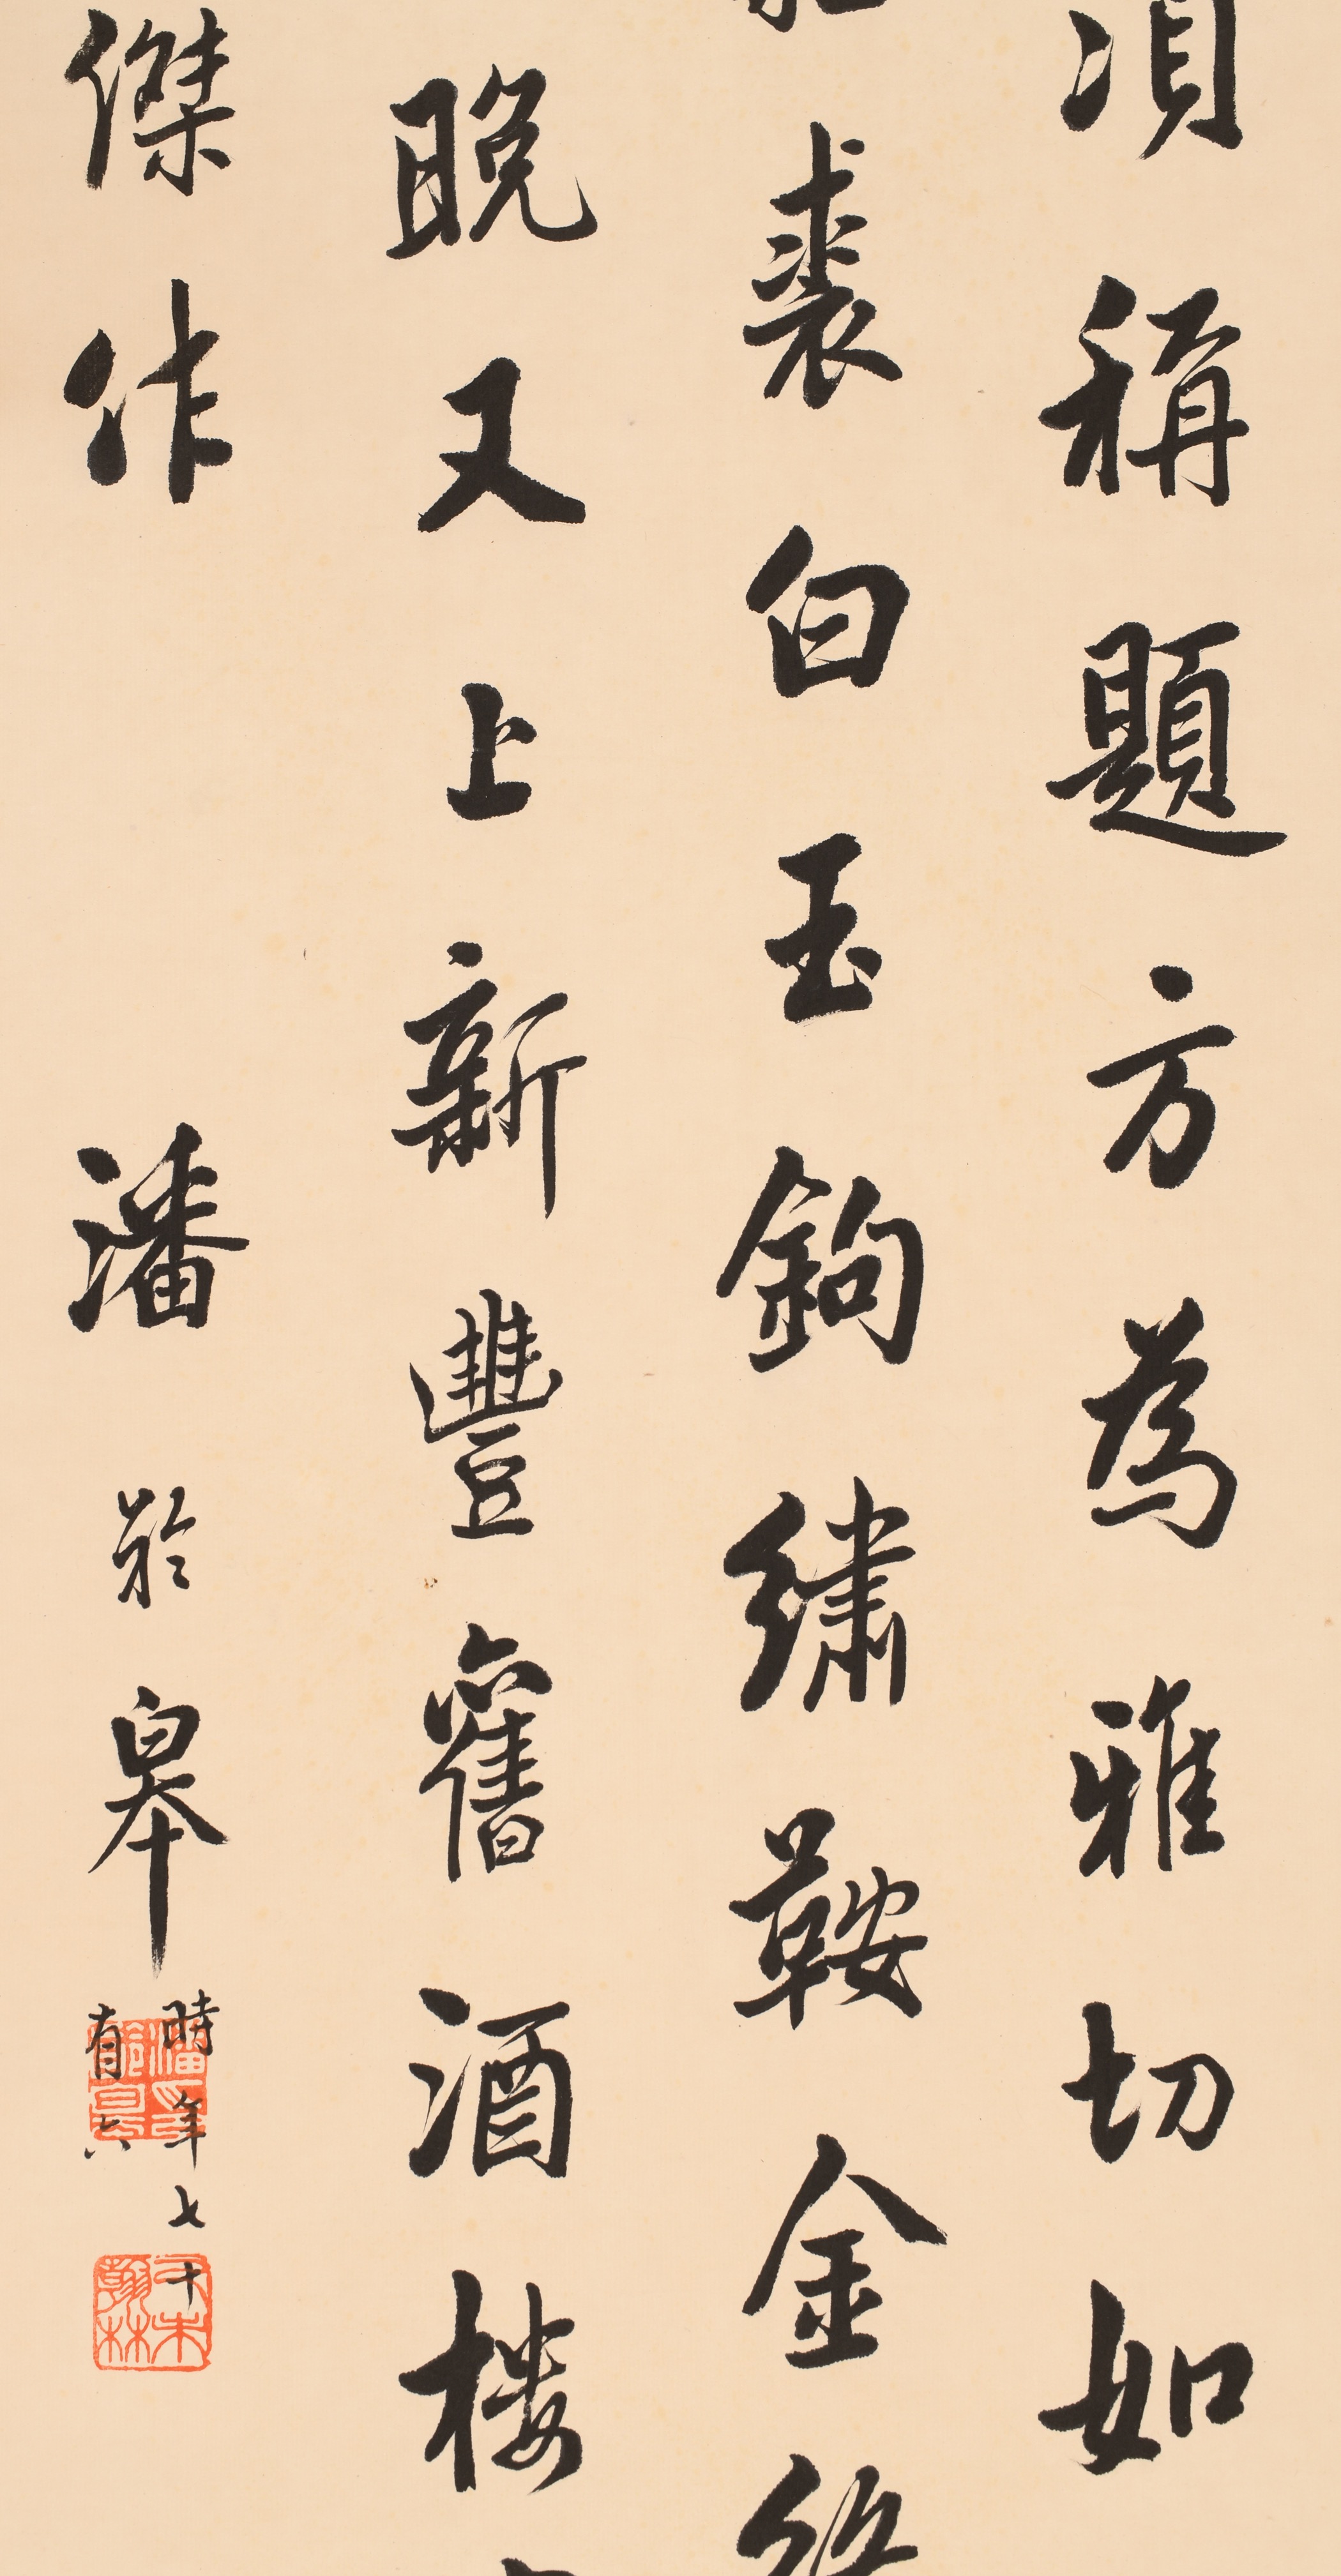 須稱題方為雅切如
裘白玉鉤繡鞍金
晚又上新豐舊酒樓
傑作
潘齡皋
時年七十
有六
潘印齡皋
乙未翰林